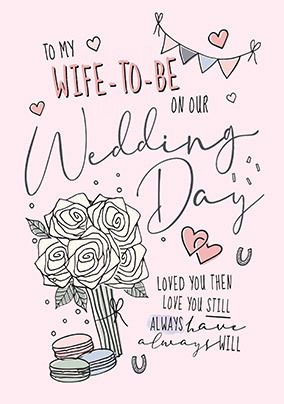 TO MY
WIFE-TO-BE
ON OUR
Wedding
Day
LOVED YOU THEN
LOVE YOU STILL
ALWAYS have
always WILL